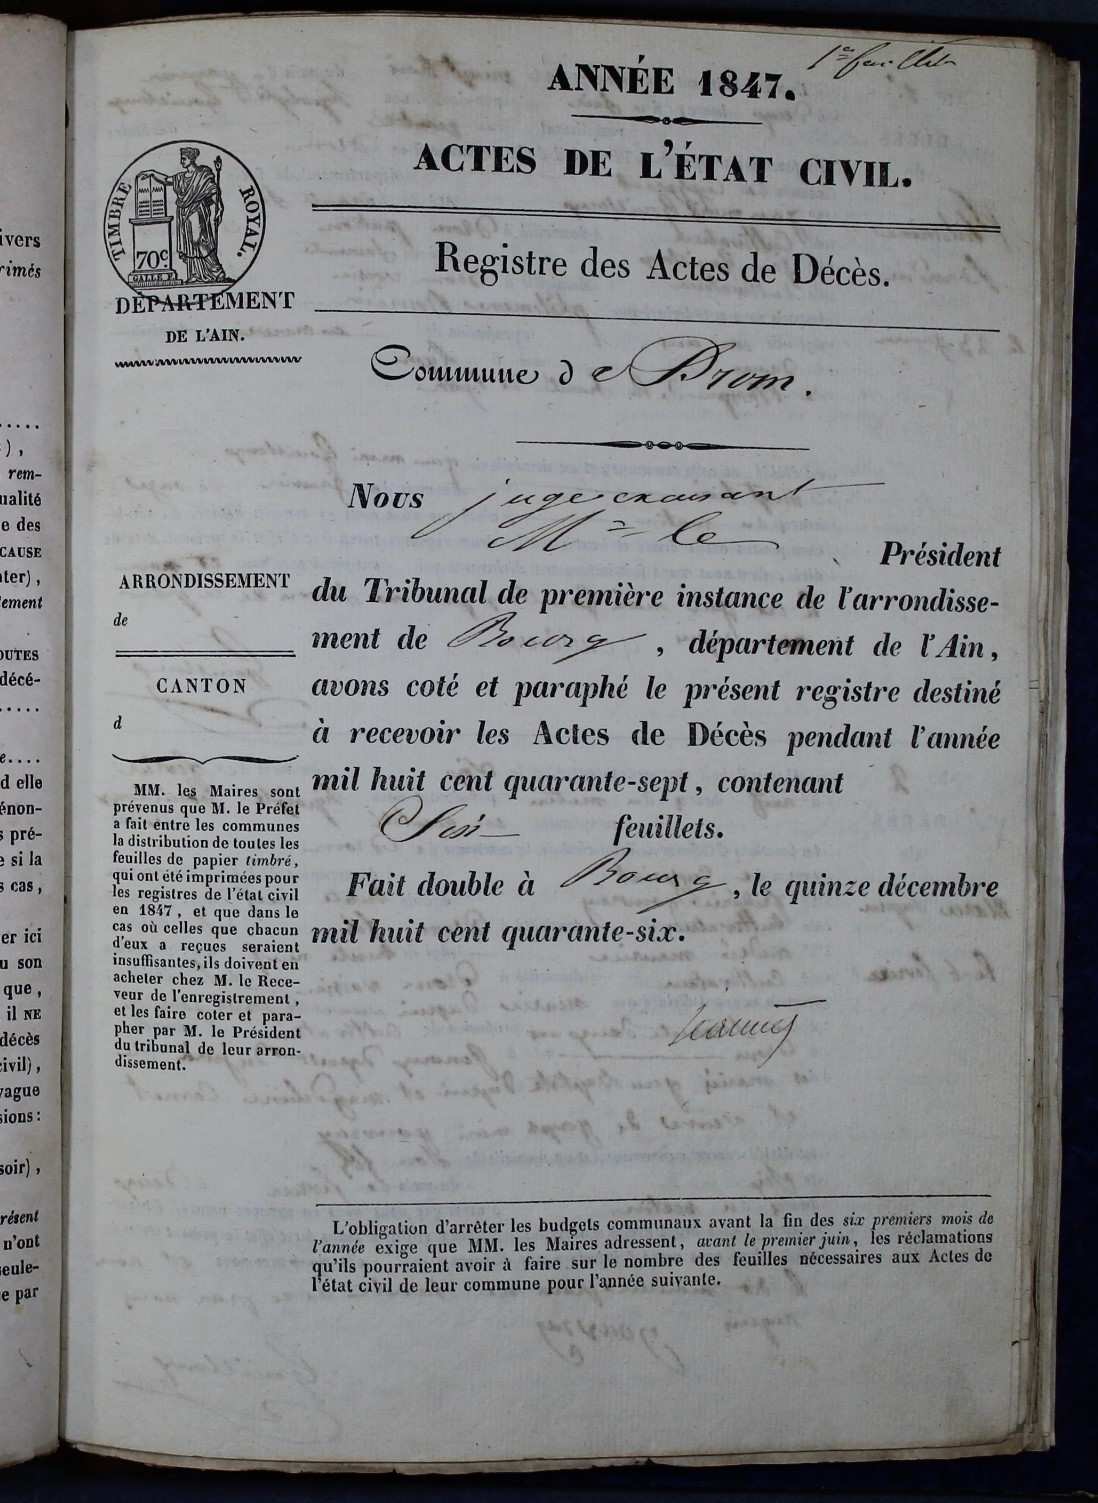 1er feuillet
ANNÉE 1847.
ACTES DE L'ÉTAT CIVIL.
TIMBRE ROYAL.
70c
GALLE F.
DÉPARTEMENT
DE L'AIN.
Registre des Actes de Décès.
Commune de Drom.
Nous juge exerçant
Mr le
Président
du Tribunal de première instance de l'arrondisse-
ment de Bourg, département de l'Ain,
avons coté et paraphé le présent registre destiné
à recevoir les Actes de Décès pendant l'année
mil huit cent quarante-sept, contenant
Six feuillets.
Fait double à Bourg, le quinze décembre
mil huit cent quarante-six.
ARRONDISSEMENT
de
CANTON
d
MM. les Maires sont
prévenus que M. le Préfet
a fait entre les communes
la distribution de toutes les
feuilles de papier timbré,
qui ont été imprimées pour
les registres de l'état civil
en 1847, et que dans le
cas où celles que chacun
d'eux a reçues seraient
insuffisantes, ils doivent en
acheter chez M. le Rece-
veur de l'enregistrement,
et les faire coter et para-
pher par M. le Président
du tribunal de leur arron-
dissement.
L'obligation d'arrêter les budgets communaux avant la fin des six premiers mois de
l'année exige que MM. les Maires adressent, avant le premier juin, les réclamations
qu'ils pourraient avoir à faire sur le nombre des feuilles nécessaires aux Actes de
l'état civil de leur commune pour l'année suivante.